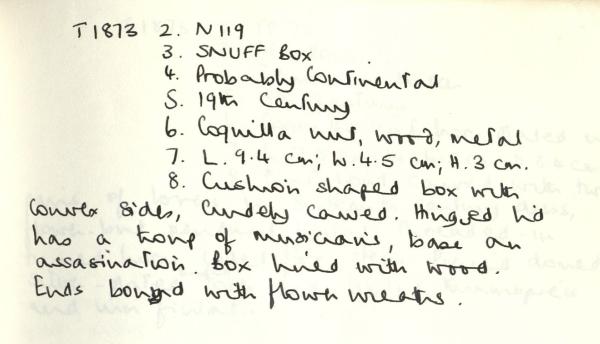 T1873 2. N119
3. SNUFF BOX
4. Probably Continental
5. 19th Century
6. Coquilla nut, wood, metal
7. L. 9.4 cm; W. 4.5 cm; H. 3 cm.
8. Cushion shaped box with
convex sides, crudely carved. Hinged lid
has a troup of musicians, base an
assasination. Box lined with wood.
Ends bound with flower wreaths.